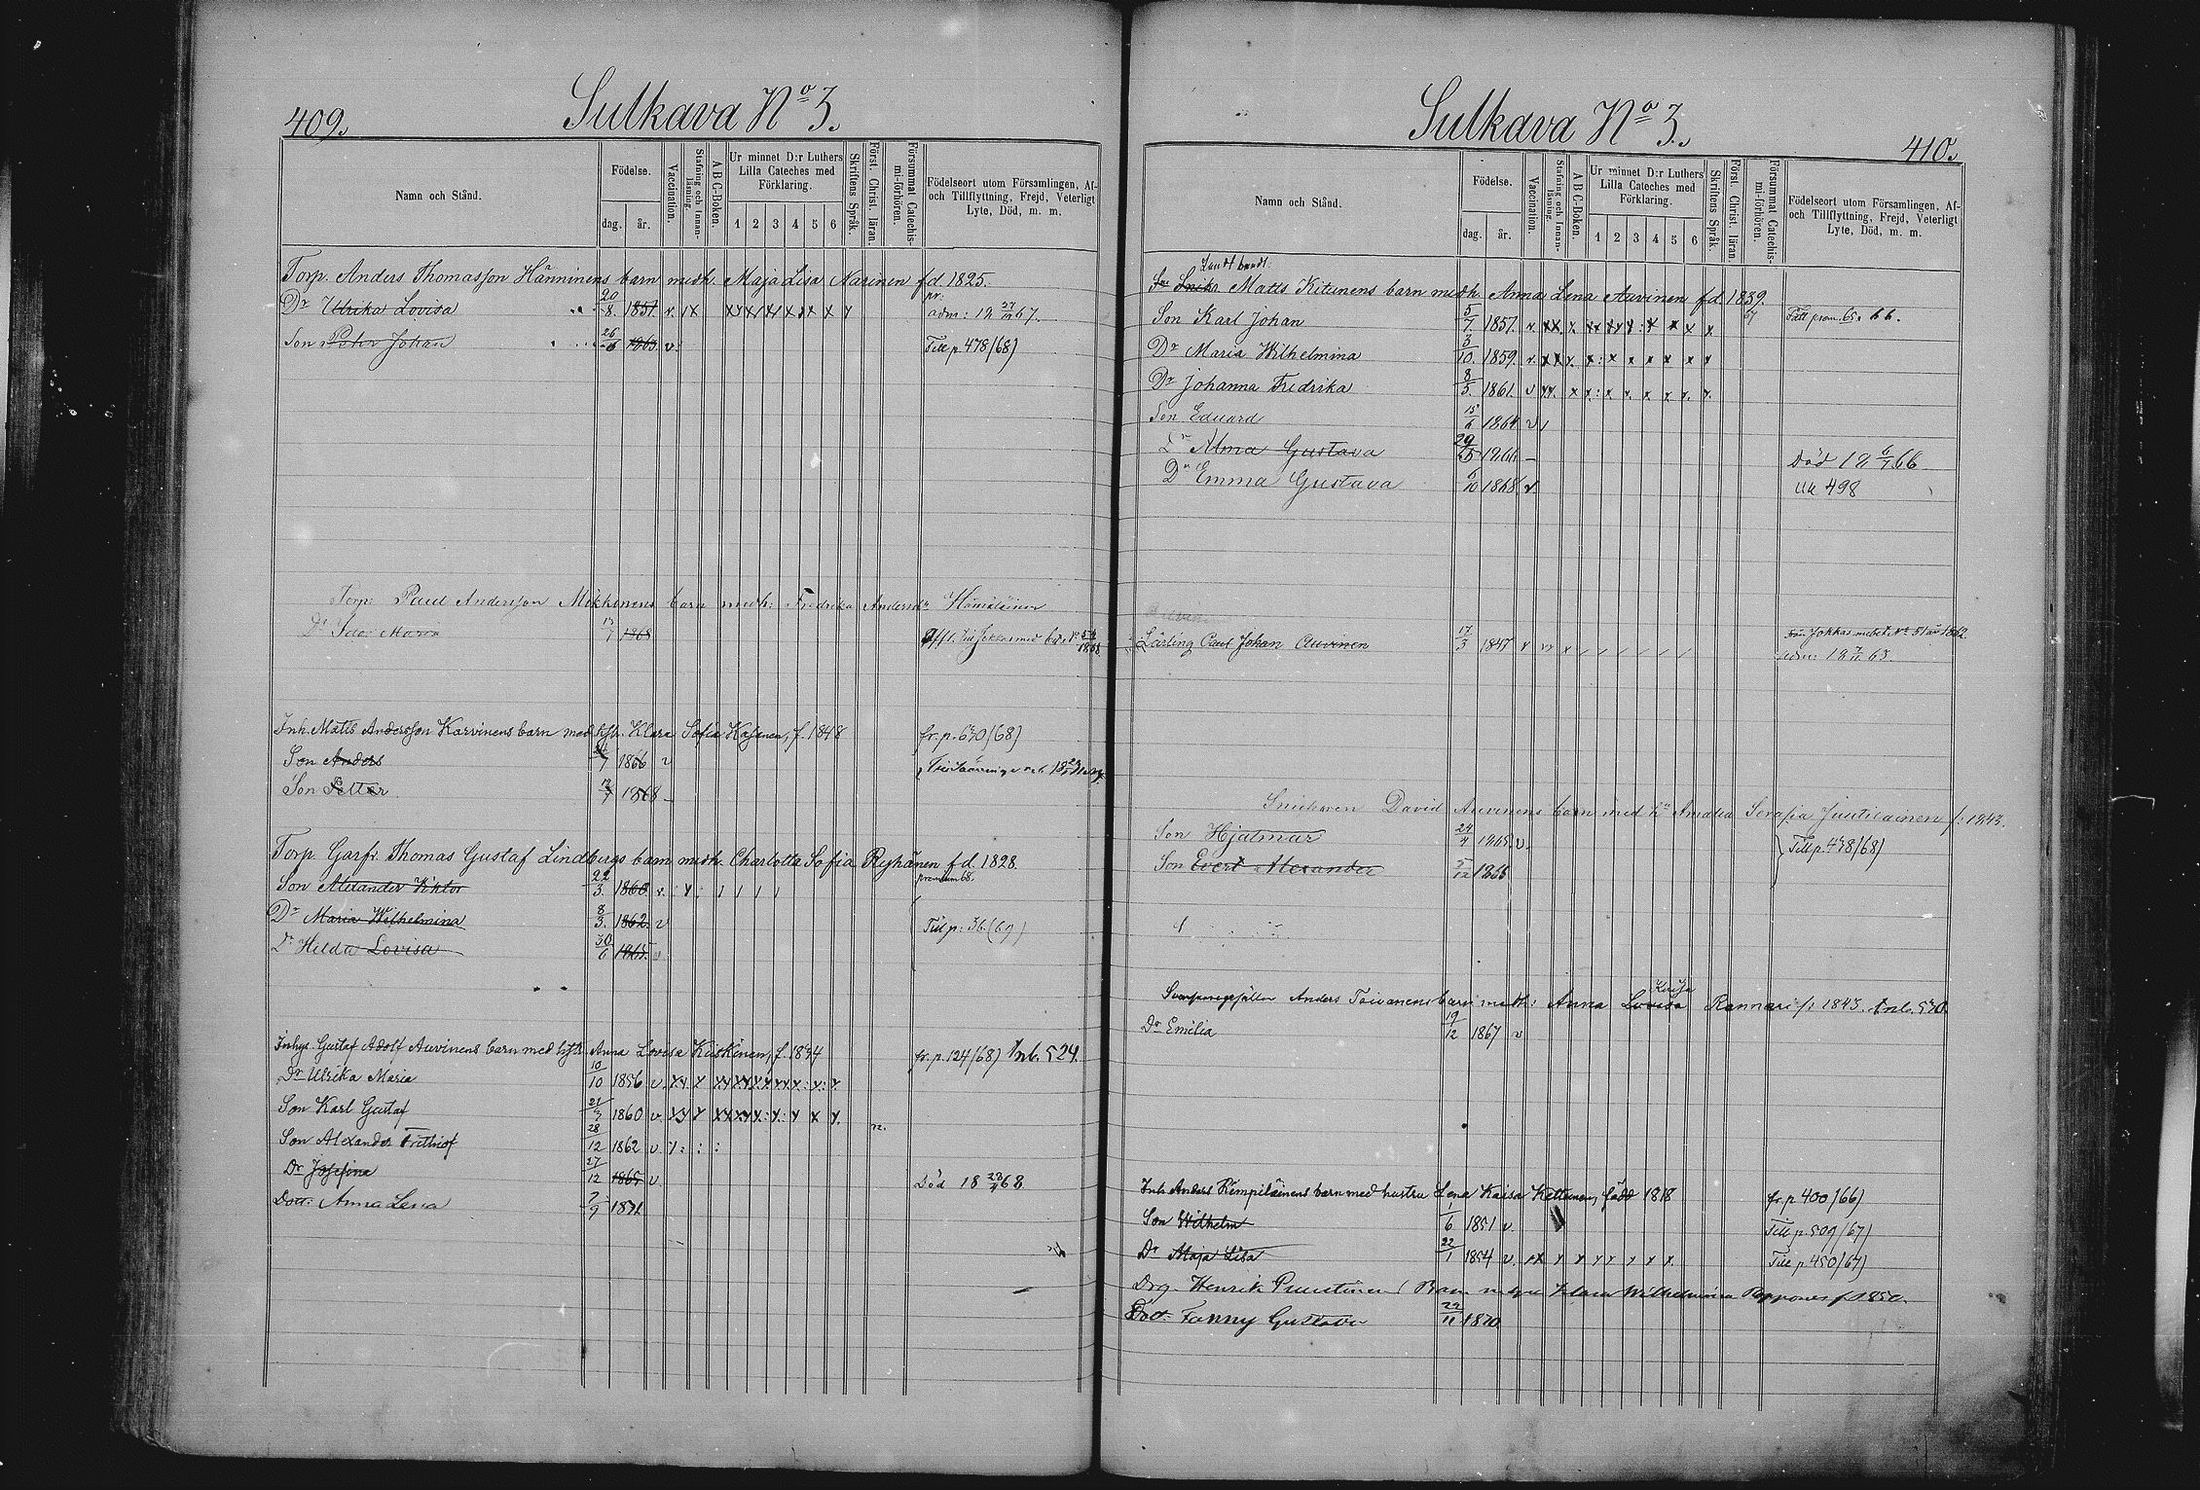 409.
Sulkava No 3.
Namn och Stånd.
Födelse.
dag.
år.
Vaccination.
Stafning och Innanläsning.
A B C-Boken.
Ur minnet D:r Luthers Lilla Cateches med Förklaring.
1 2 3 4 5 6
Skriftens Språk.
Först. Christ. läran.
Försummat Catechismi-förhören.
Födelseort utom Församlingen, Af-
och Tillflyttning, Frejd, Veterligt
Lyte, Död, m. m.
Torp. Anders Thomasson Hänninens barn medh. Maja Lisa Narinen fd. 1825.
Dr Ulrika Lovisa 20/8. 1851. v. adm: 18 67.
Son Peter Johan v. Till p. 478/68)
Torp. Paul Andersson Mikkonens barn medh: Fredrika Andersdr Hämäläinen
Dr Maria 1868
Inh. Matts Andersson Karvinens barn med hstr. Klara Sofia f. 1848 fr. p. 630/68)
Son Anders 1866 v
Son Petter 1868 –
Torp. Garfv. Thomas Gustaf Lindbergs barn medh. Charlotta Sofia Ryhänen f.d. 1828.
Son Alexander Viktor 22/3. 1860. v.
Dr Maria Wilhelmina 8/3. 1862. v Till p: 36. (69)
Dr Hilda Lovisa 30/6 1865. v
Inhys. Gustaf Adolf Auvinens barn med hstr. Anna Lovisa Kiiskinen, f. 1834 fr. p. 124/68) Inb. 524.
Dr Ulrika Maria 10/10 1856 v.
Son Karl Gustaf 1860 v.
Son Alexander Frithiof 28/12 1862 v.
Dr Josefina 27/12 1865 v. Död 18 68
Dott. Anna Lena 7/9 1871
Sulkava No 3.
410.
Namn och Stånd.
Födelse.
dag.
år.
Vaccination.
Stafning och Innanläsning.
A B C-Boken.
Ur minnet D:r Luthers Lilla Cateches med Förklaring.
1 2 3 4 5 6
Skriftens Språk.
Först. Christ. läran.
Försummat Catechismi-förhören.
Födelseort utom Församlingen, Af-
och Tillflyttning, Frejd, Veterligt
Lyte, Död, m. m.
Matts Kitunens barn medh. Anna Lena Auvinen fd. 1839.
Son Karl Johan 5/7. 1857. v. 66.
Dr Maria Wilhelmina 3/10. 1859. v.
Dr Johanna Fredrika 8/5. 1861. v
Son Eduard 15/6 1864 v
Dr Alma Gustava 29/5 1866 – Död 18 6/7 66
Dr Emma Gustava 6/10 1868. v. 498
Lärling Paul Johan Auvinen 17/3 1847 v adm: 18 63.
Snickaren David Auvinens barn med hu Amalia Serafia Juutilainen f. 1843.
Son Hjalmar 24/4 1865 v. Till p. 438/68)
Son Evert Alexander
Anders Toivanens barn medh: Anna Lovisa Kaisa Rannari f: 1843. Inb. 530.
Dr Emilia 19/12 1867 v
Inh. Anders Rimpiläinens barn med hustru Lena Kaisa Kettunen, född 1818 fr. p 400/66)
Son Wilhelm 1/6 1851 v. Till p. 509/67)
Dr Maja Lisa 22/1 1854 v. Till p 450/67)
Drg. Henrik Puustinen Barn m. Klara Wilhelmina f 1850.
Dott. Fanny Gustava 22/11 1870